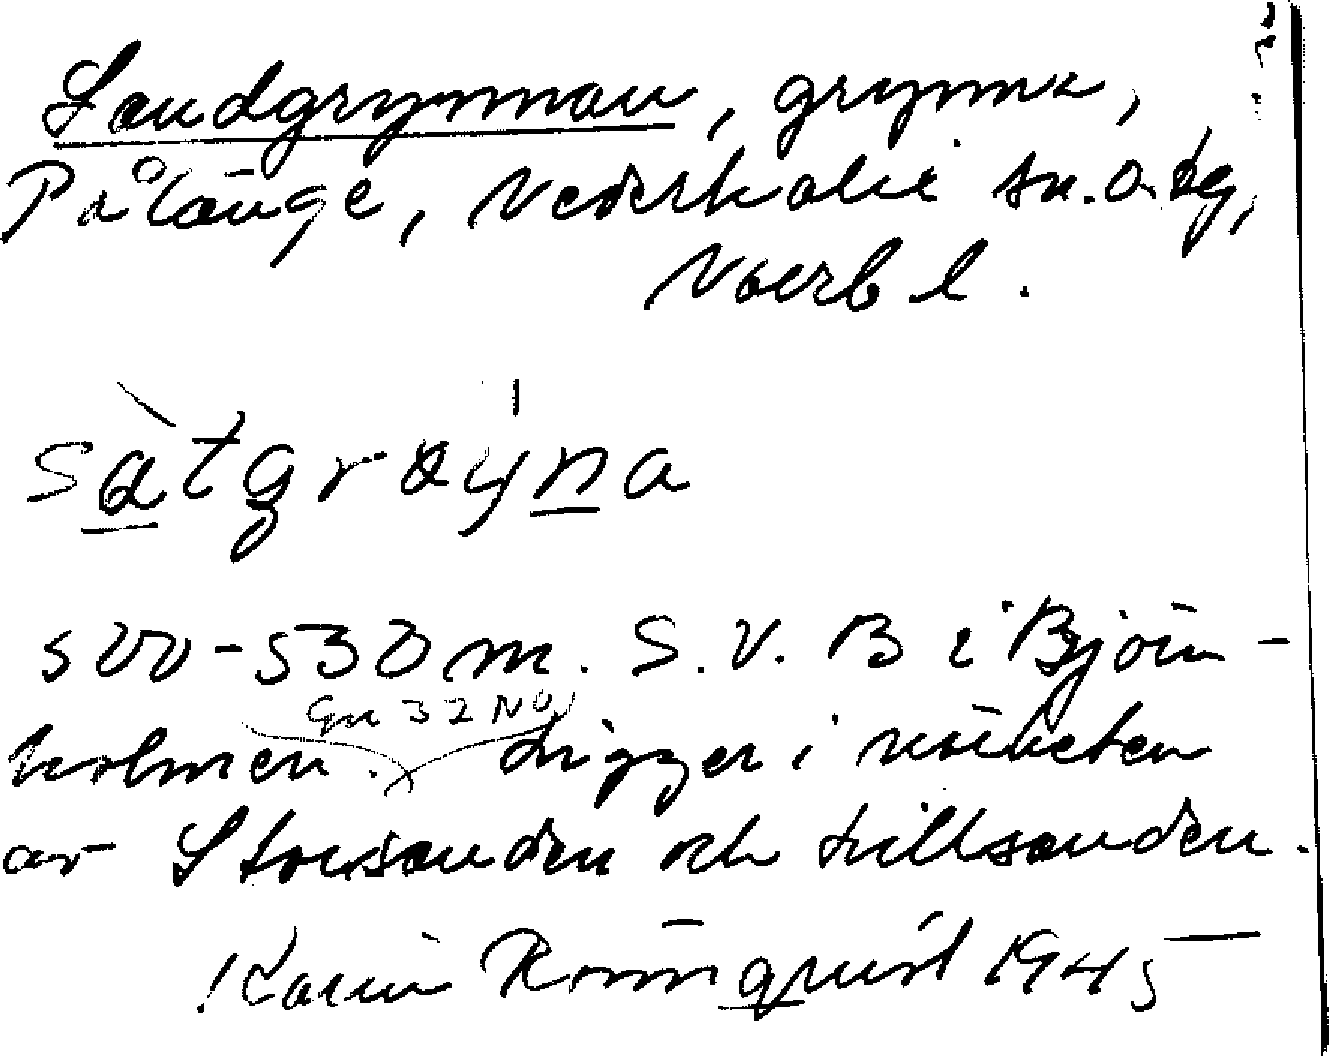 Sandgrynnan, grynna,
Pålänge, Nederkalix sn. o. tg,
Norrb l.
sàtgrøýna
500-530 m. S.V. B i Björn-
Gru 32 NO
holmen. Ligger i närheten
av Storsanden och Lillsanden.
Karin Rönnqvist 1945